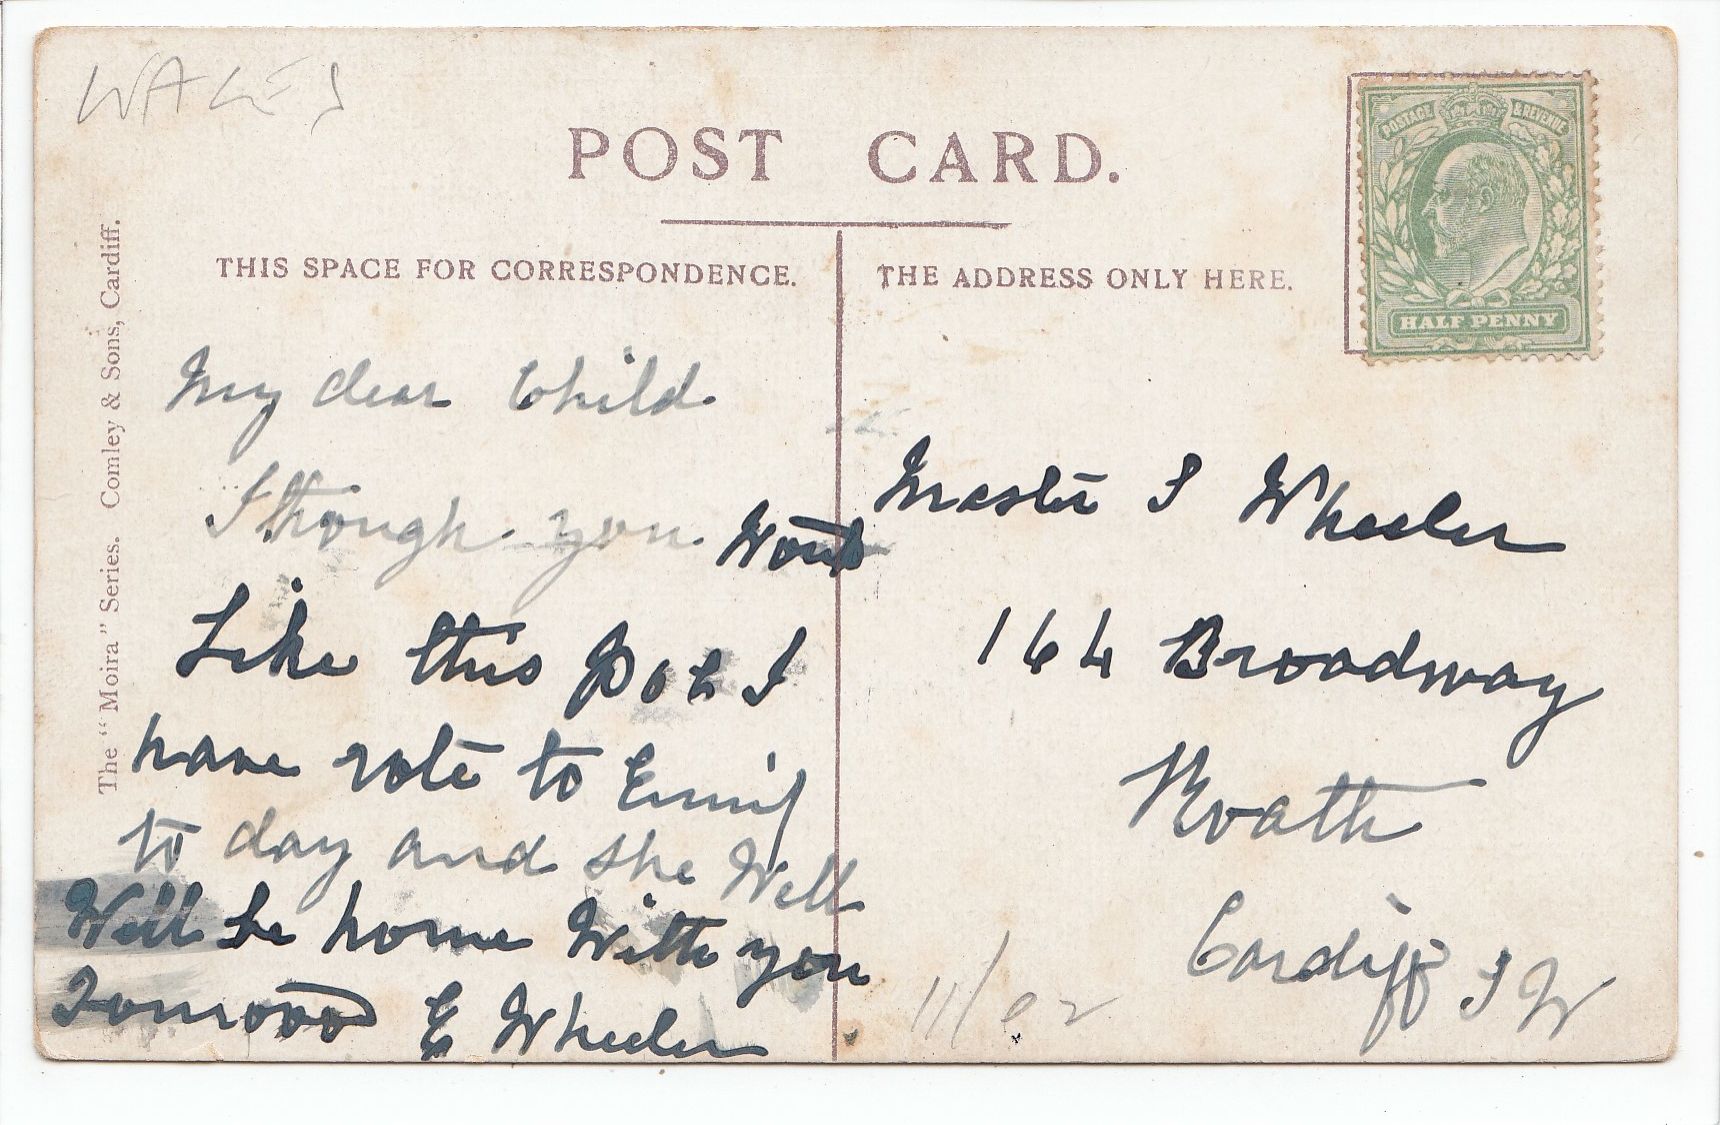 WALES
POST CARD.
POSTAGE & REVENUE
HALF PENNY
THIS SPACE FOR CORRESPONDENCE.
THE ADDRESS ONLY HERE.
The "Moira" Series. Comley & Sons, Cardiff.
My dear Child
I though you
Like this I
have rote to Emily
to day and she Well
Will be home With you
E Wheeler
Master I Wheeler
164 Broadway
Roath
Cardiff S W